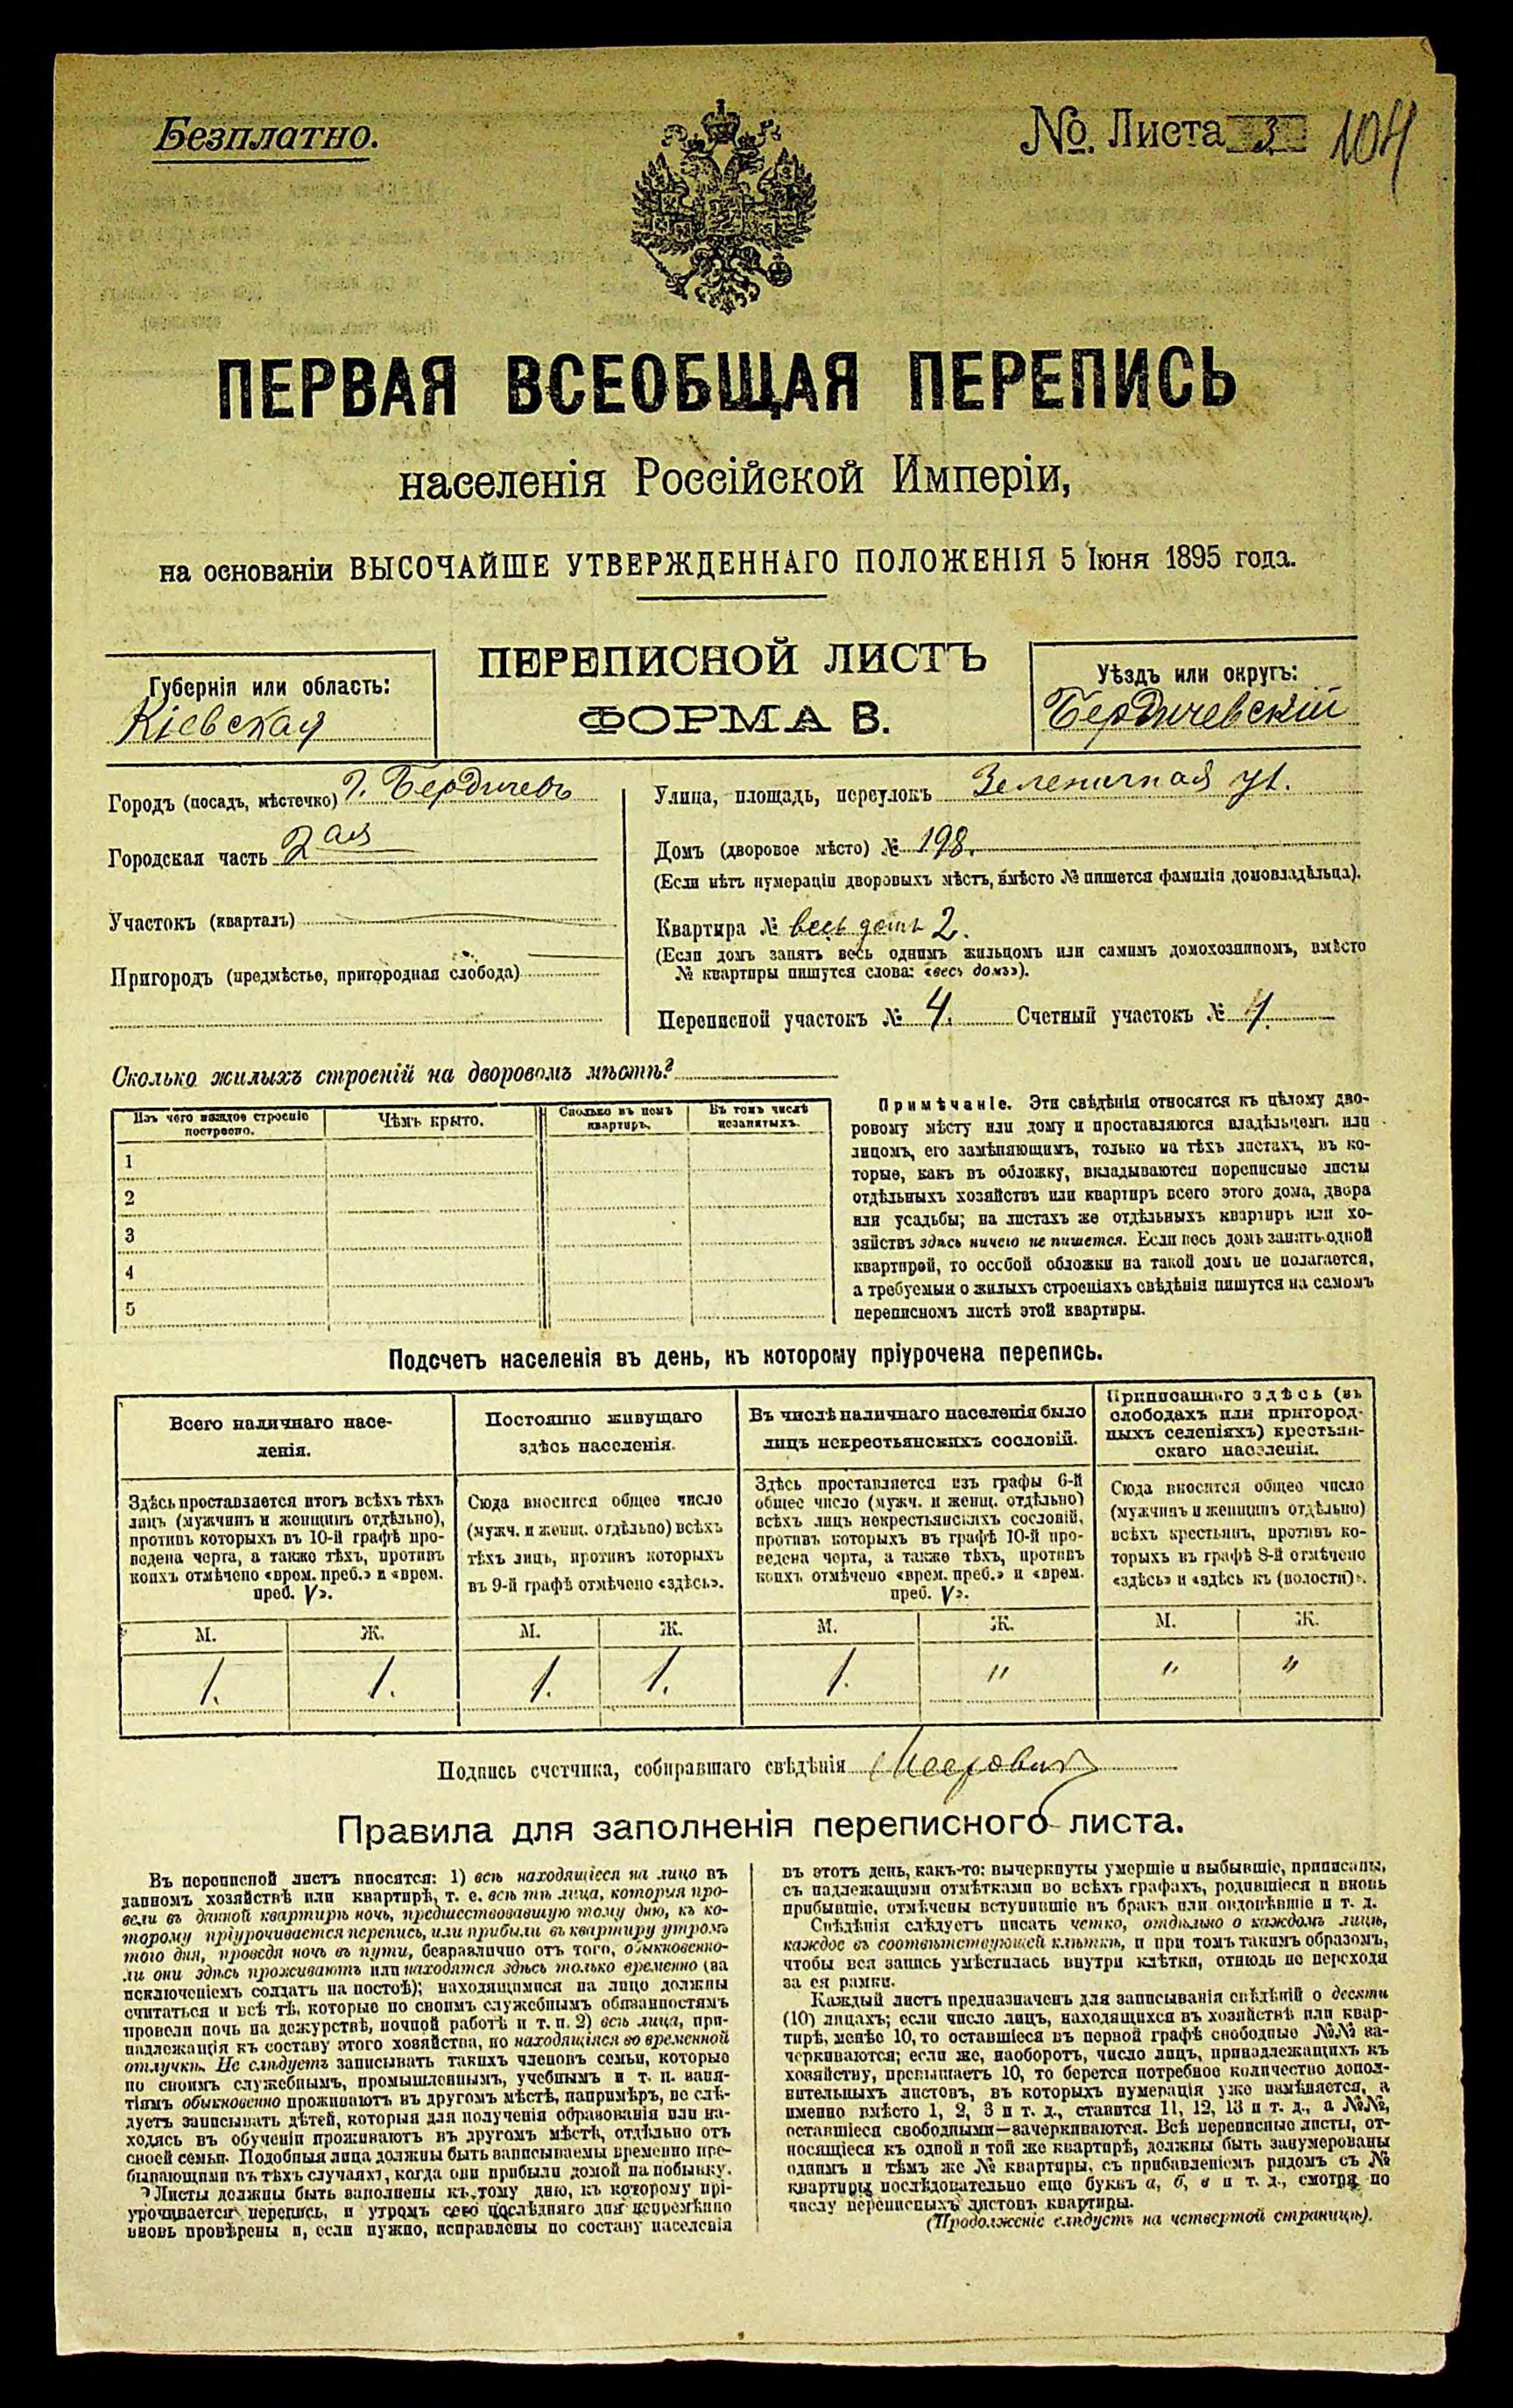 Безплатно.
№. Листа 3 104
ПЕРВАЯ ВСЕОБЩАЯ ПЕРЕПИСЬ
населенія Россійской Имперіи,
на основаніи ВЫСОЧАЙШЕ УТВЕРЖДЕННАГО ПОЛОЖЕНІЯ 5 Іюня 1895 года.
ПЕРЕПИСНОЙ ЛИСТЪ
ФОРМА В.
Губернія или область:
Кіевская
Уѣздъ или округъ:
Бердичевскій
Городъ (посадъ, мѣстечко) г. Бердичевъ
Городская часть 2ая
Участокъ (кварталъ)
Пригородъ (предмѣстье, пригородная слобода)
Улица, площадь, переулокъ Зеленичная ул.
Домъ (дворовое мѣсто) № 198.
(Если нѣтъ нумераціи дворовыхъ мѣстъ, вмѣсто № пишется фамилія домовладѣльца).
Квартира № весь домъ 2.
(Если домъ занятъ весь однимъ жильцомъ или самимъ домохозяиномъ, вмѣсто
№ квартиры пишутся слова: «весь домъ»).
Переписной участокъ № 4. Счетный участокъ № 1.
Сколько жилыхъ строеній на дворовомъ мѣстѣ?
Изъ чего каждое строеніе
построено.
Чѣмъ крыто.
Сколько въ немъ
квартиръ.
Въ томъ числѣ
незанятыхъ.
1
2
3
4
5
Примѣчаніе. Эти свѣдѣнія относятся къ цѣлому дво-
ровому мѣсту или дому и проставляются владѣльцемъ или
лицомъ, его замѣняющимъ, только на тѣхъ листахъ, въ ко-
торые, какъ въ обложку, вкладываются переписные листы
отдѣльныхъ хозяйствъ или квартиръ всего этого дома, двора
или усадьбы; на листахъ же отдѣльныхъ квартиръ или хо-
зяйствъ здѣсь ничего не пишется. Если весь домъ занятъ одной
квартирой, то особой обложки на такой домъ не полагается,
а требуемыя о жилыхъ строеніяхъ свѣдѣнія пишутся на самомъ
переписномъ листѣ этой квартиры.
Подсчетъ населенія въ день, къ которому пріурочена перепись.
Всего наличнаго насе-
ленія.
Здѣсь проставляется итогъ всѣхъ тѣхъ
лицъ (мужчинъ и женщинъ отдѣльно),
противъ которыхъ въ 10-й графѣ про-
ведена черта, а также тѣхъ, противъ
коихъ отмѣчено «врем. преб.» и «врем.
преб. V».
Постоянно живущаго
здѣсь населенія.
Сюда вносится общее число
(мужч. и женщ. отдѣльно) всѣхъ
тѣхъ лицъ, противъ которыхъ
въ 9-й графѣ отмѣчено «здѣсь».
Въ числѣ наличнаго населенія было
лицъ некрестьянскихъ сословій.
Здѣсь проставляется изъ графы 6-й
общее число (мужч. и женщ. отдѣльно)
всѣхъ лицъ некрестьянскихъ сословій,
противъ которыхъ въ графѣ 10-й про-
ведена черта, а также тѣхъ, противъ
коихъ отмѣчено «врем. преб.» и «врем.
преб. V».
Приписаннаго здѣсь (въ
слободахъ или пригород-
ныхъ селеніяхъ) крестьян-
скаго населенія.
Сюда вносится общее число
(мужчинъ и женщинъ отдѣльно)
всѣхъ крестьянъ, противъ ко-
торыхъ въ графѣ 8-й отмѣчено
«здѣсь» и «здѣсь къ (волости)».
М. Ж. М. Ж. М. Ж. М. Ж.
1. 1. 1. 1. 1. " " "
Подпись счетчика, собиравшаго свѣдѣнія
Правила для заполненія переписного листа.
Въ переписной листъ вносятся: 1) всѣ находящіеся на лицо въ
данномъ хозяйствѣ или квартирѣ, т. е. всѣ тѣ лица, которыя про-
вели въ данной квартирѣ ночь, предшествовавшую тому дню, къ ко-
торому пріурочивается перепись, или прибыли въ квартиру утромъ
того дня, проведя ночь въ пути, безразлично отъ того, обыкновенно-
ли они здѣсь проживаютъ или находятся здѣсь только временно (за
исключеніемъ солдатъ на постоѣ); находящимися на лицо должны
считаться и всѣ тѣ, которые по своимъ служебнымъ обязанностямъ
провели ночь на дежурствѣ, ночной работѣ и т. п. 2) всѣ лица, при-
надлежащія къ составу этого хозяйства, но находящіяся во временной
отлучкѣ. Не слѣдуетъ записывать такихъ членовъ семьи, которые
по своимъ служебнымъ, промышленнымъ, учебнымъ и т. п. заня-
тіямъ обыкновенно проживаютъ въ другомъ мѣстѣ, напримѣръ, не слѣ-
дуетъ записывать дѣтей, которыя для полученія образованія или на-
ходясь въ обученіи проживаютъ въ другомъ мѣстѣ, отдѣльно отъ
своей семьи. Подобныя лица должны быть записываемы временно пре-
бывающими въ тѣхъ случаяхъ, когда они прибыли домой на побывку.
Листы должны быть заполнены къ тому дню, къ которому прі-
урочивается перепись, и утромъ сего послѣдняго дня непремѣнно
вновь провѣрены и, если нужно, исправлены по составу населенія
въ этотъ день, какъ-то: вычеркнуты умершіе и выбывшіе, приписаны,
съ надлежащими отмѣтками во всѣхъ графахъ, родившіеся и вновь
прибывшіе, отмѣчены вступившіе въ бракъ или овдовѣвшіе и т. д.
Свѣдѣнія слѣдуетъ писать четко, отдѣльно о каждомъ лицѣ,
каждое въ соотвѣтствующей клѣткѣ, и при томъ такимъ образомъ,
чтобы вся запись умѣстилась внутри клѣтки, отнюдь не переходя
за ея рамки.
Каждый листъ предназначенъ для записыванія свѣдѣній о десяти
(10) лицахъ; если число лицъ, находящихся въ хозяйствѣ или квар-
тирѣ, менѣе 10, то оставшіеся въ первой графѣ свободные №№ за-
черкиваются; если же, наоборотъ, число лицъ, принадлежащихъ къ
хозяйству, превышаетъ 10, то берется потребное количество допол-
нительныхъ листовъ, въ которыхъ нумерація уже измѣняется, а
именно вмѣсто 1, 2, 3 и т. д., ставится 11, 12, 13 и т. д., а №№,
оставшіеся свободными—зачеркиваются. Всѣ переписные листы, от-
носящіеся къ одной и той же квартирѣ, должны быть занумерованы
однимъ и тѣмъ же № квартиры, съ прибавленіемъ рядомъ съ №
квартиры послѣдовательно еще буквъ а, б, в и т. д., смотря по
числу переписныхъ листовъ квартиры.
(Продолженіе слѣдуетъ на четвертой страницѣ).